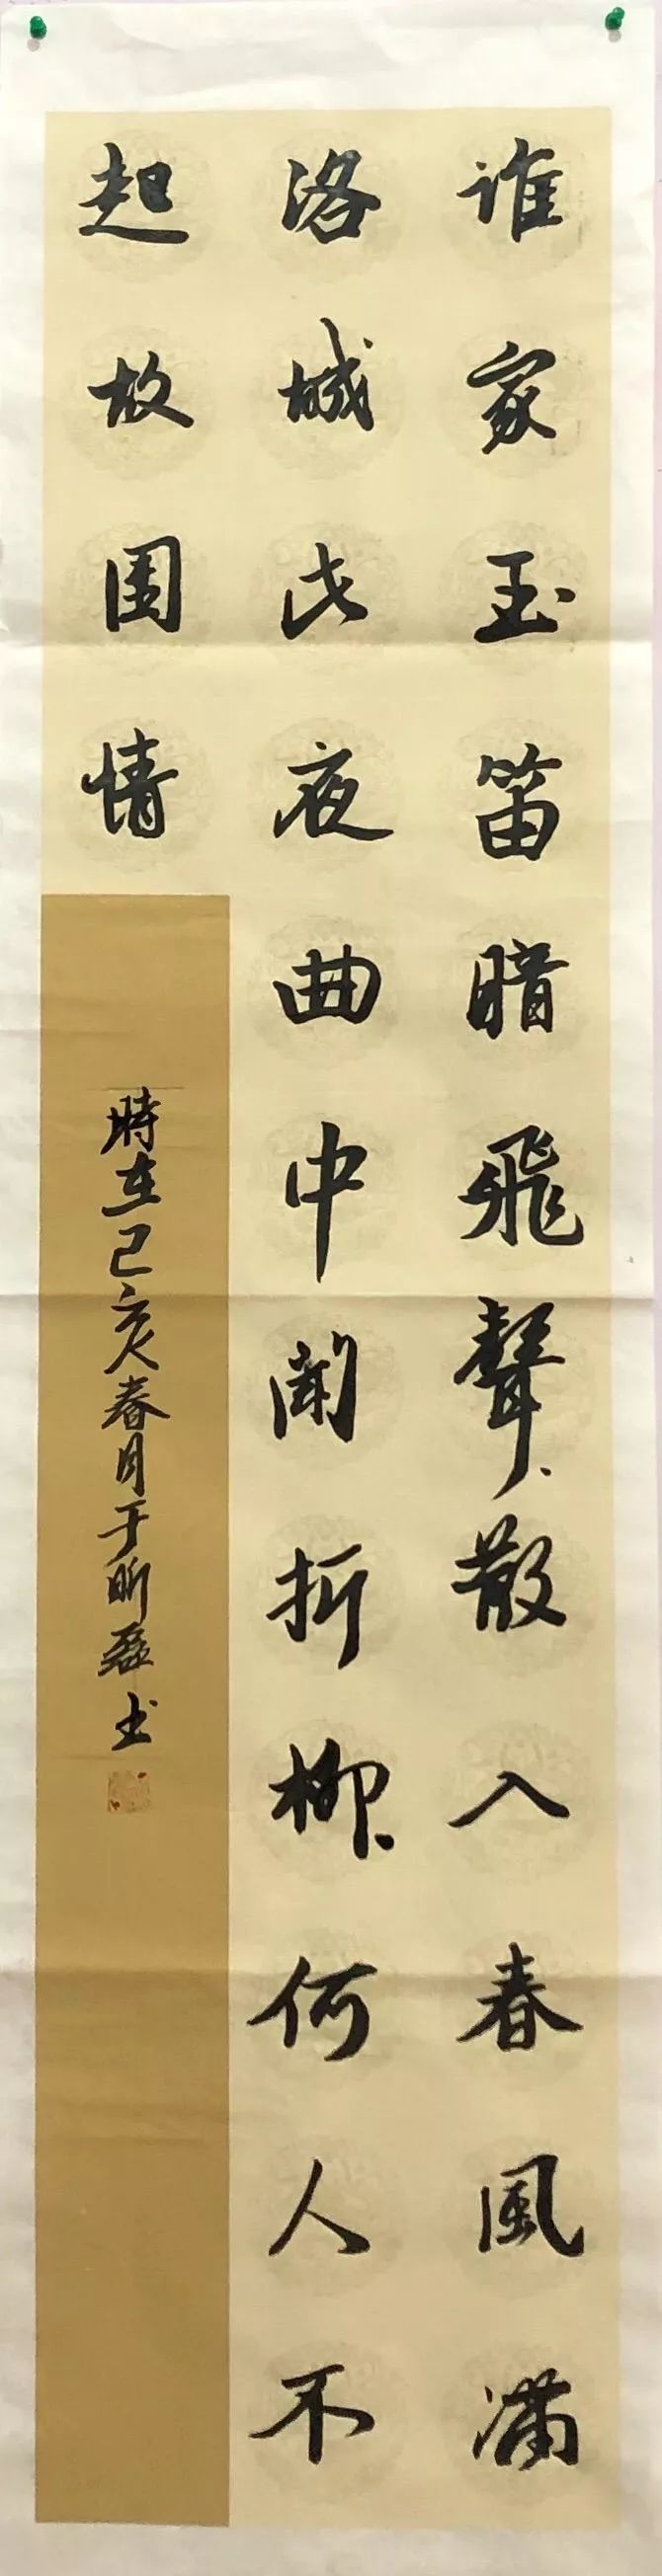 谁家玉笛暗飛聲散入春風满
洛城此夜曲中闻折柳何人不
起故園情
時在己亥春月于昕磊书